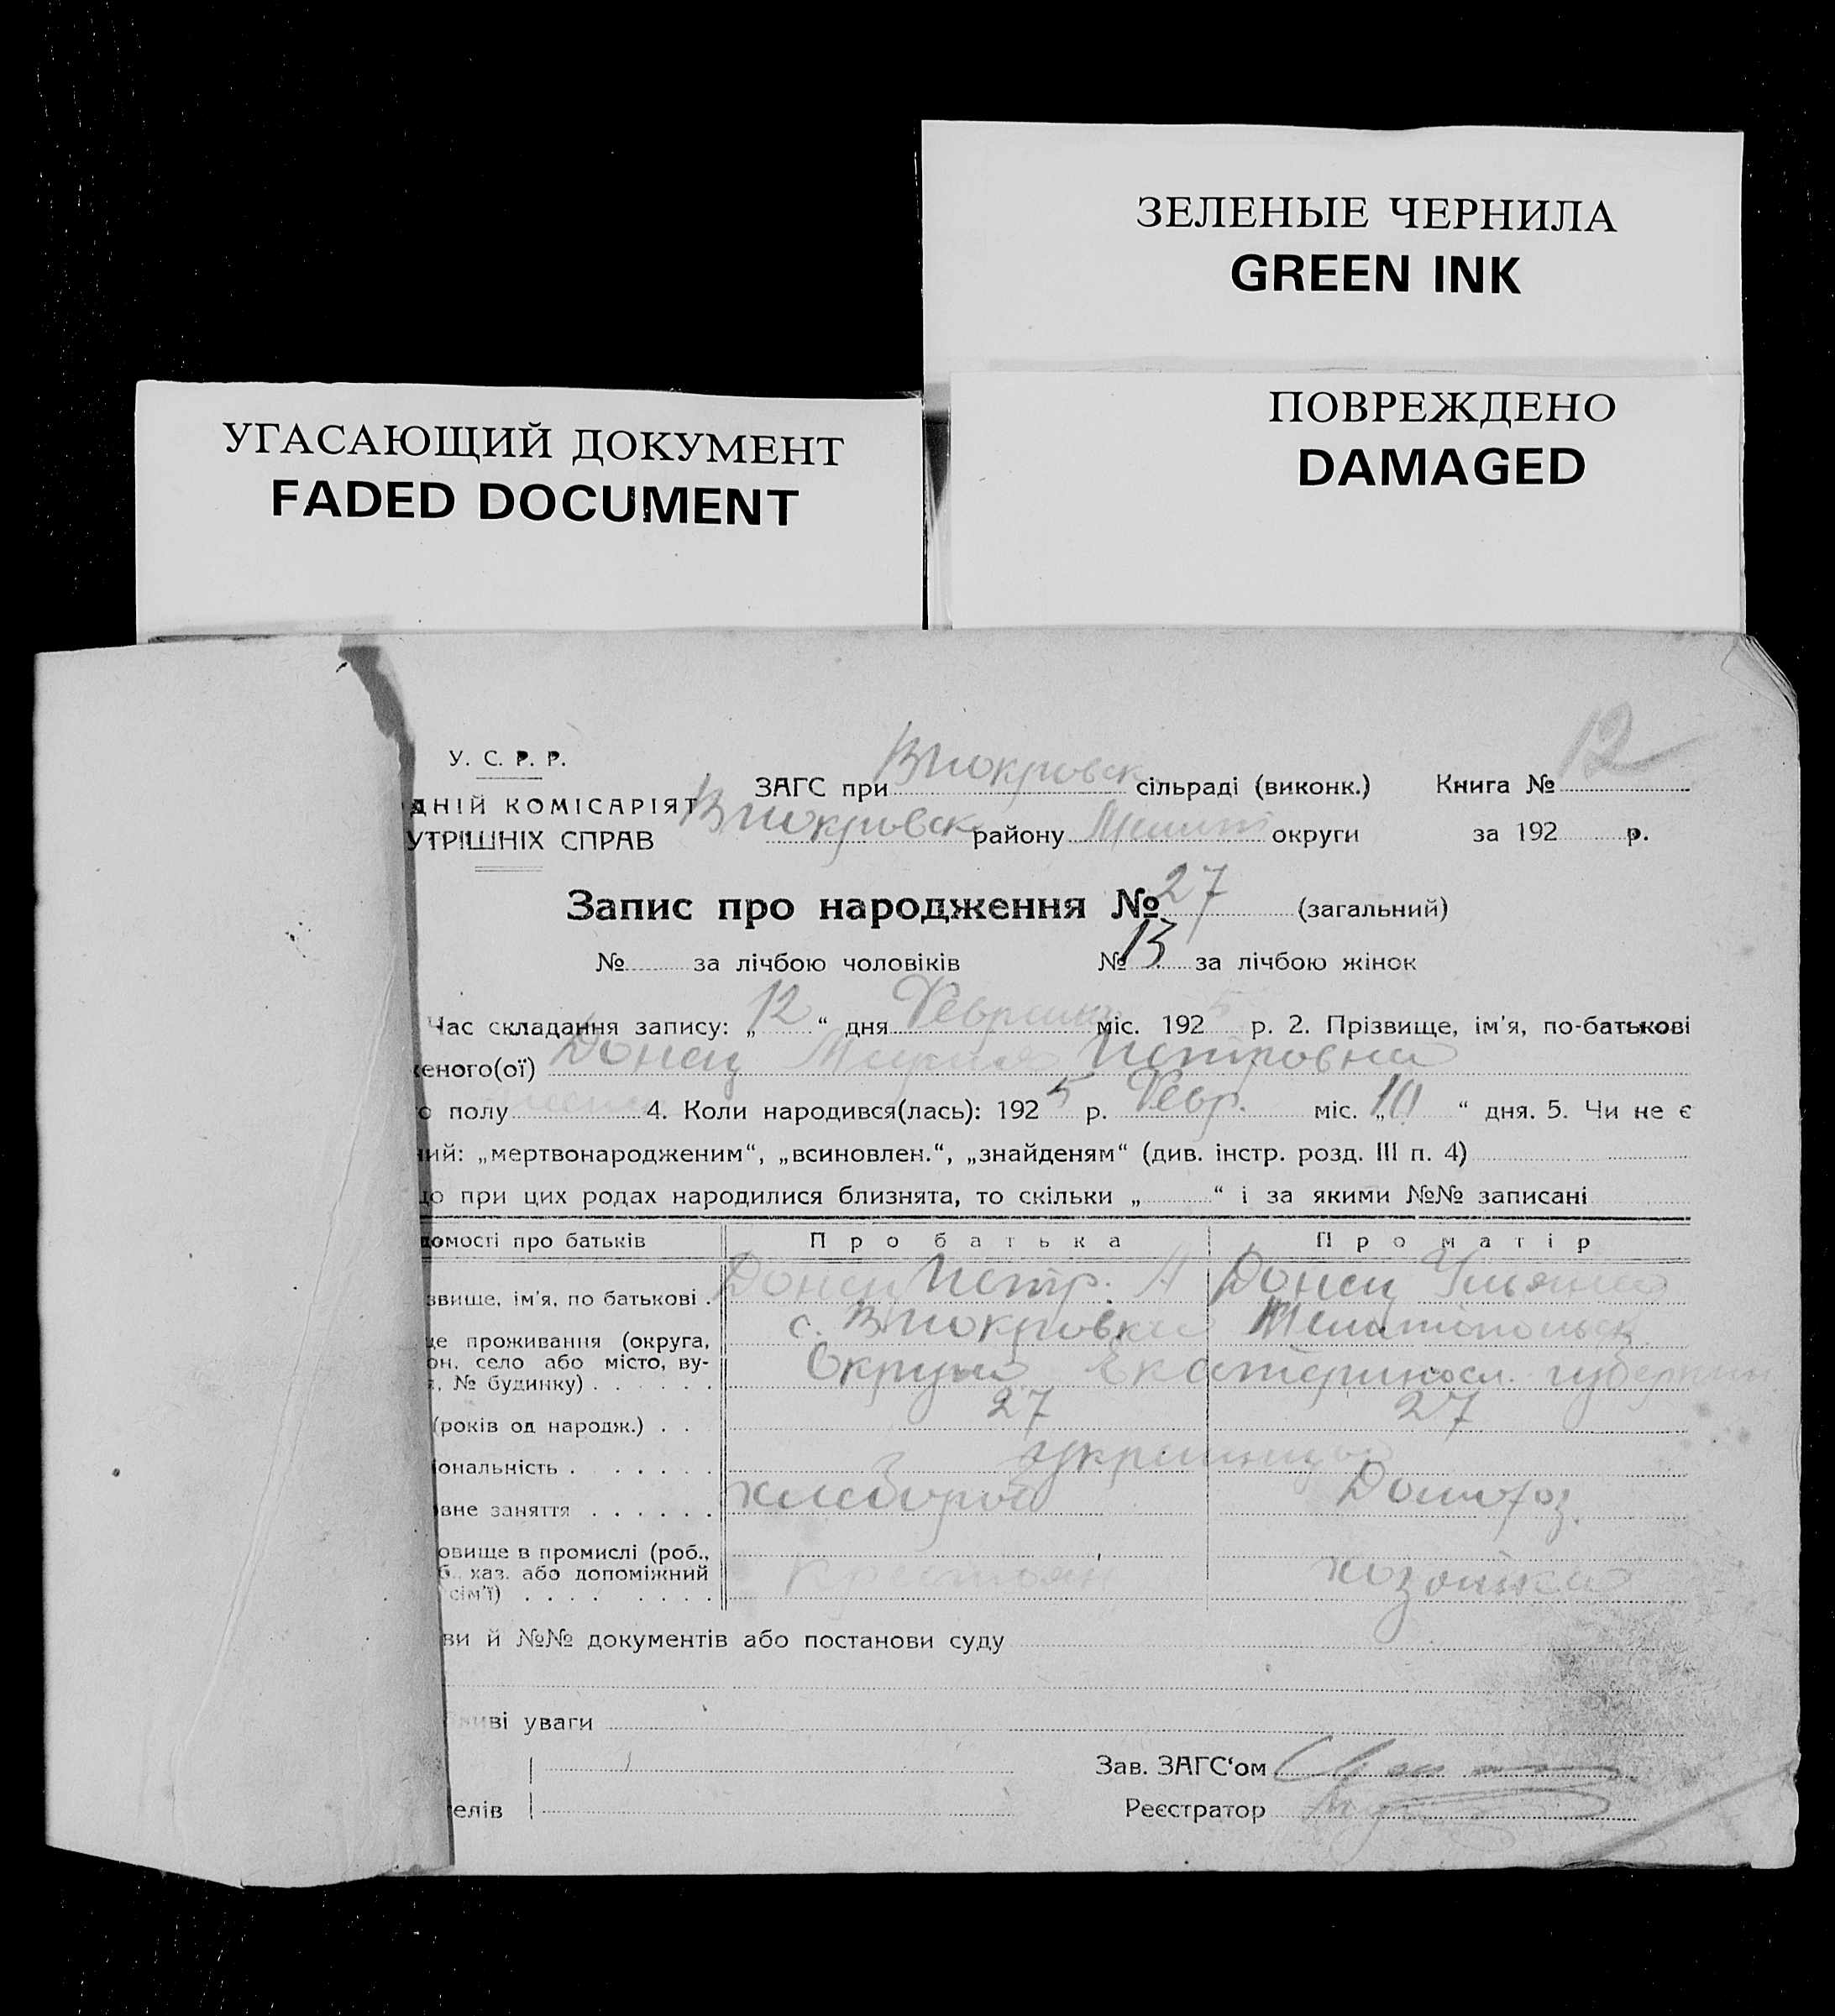 ЗЕЛЕНЫЕ ЧЕРНИЛА
GREEN INK
ПОВРЕЖДЕНО
DAMAGED
УГАСАЮЩИЙ ДОКУМЕНТ
FADED DOCUMENT
У. С. Р. Р.
ДНІЙ КОМІСАРІЯТ
УТРІШНІХ СПРАВ
ЗАГС при ВПокровск сільраді (виконк.) Книга № 12
ВПокровск району Мелит округи за 192 р.
Запис про народження № 27 (загальний)
№ за лічбою чоловіків № 13 за лічбою жінок
Час складання запису: „12“ дня Февраля міс. 1925 р. 2. Прізвище, ім'я, по-батькові
еного(ої) Донец Мария Петровна
о полу 4. Коли народився(лась): 1925 р. Февр. міс. „10“ дня. 5. Чи не є
ий: „мертвонародженим“, „всиновлен.“, „знайденям“ (див. інстр. розд. III п. 4)
що при цих родах народилися близнята, то скільки „ “ і за якими №№ записані
домості про батьків Про батька Про матір
звище, ім'я, по батькові . Донец Петр. А Донец Ульяна
це проживання (округа, с. ВПокровка Мелитопольск
он, село або місто, ву-
, № будинку) . . . . . . Округа Екатериносл. губернии
(років од народж.) . . 27 27
іональність . . . . . . украинцы
вне заняття . . . . . . хлебороб Домохоз.
овище в промислі (роб.,
б. хаз. або допоміжний крестьян хозяйка
сім'ї) . . . . . . . .
ви й №№ документів або постанови суду
иві уваги
Зав. ЗАГС'ом
елів Реєстратор